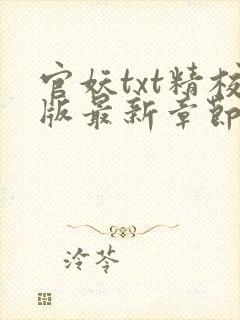 官妖txt精校
版最新章節
泠苓